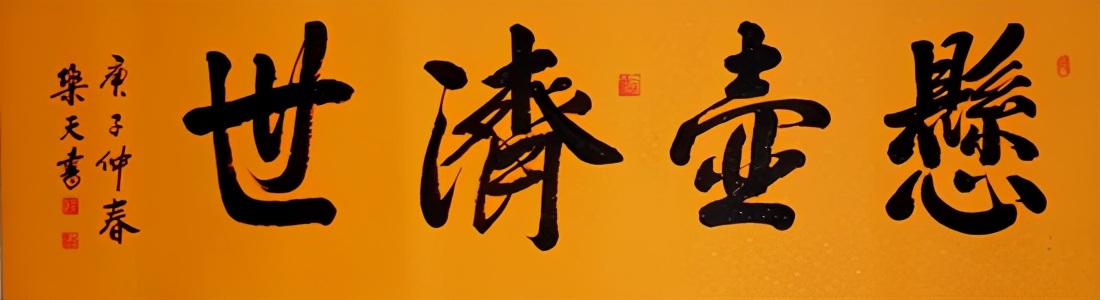 懸壺濟世
庚子仲春
樂天書